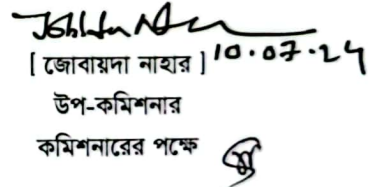 [ জোবায়দা নাহার ] 10.07.24
উপ-কমিশনার
কমিশনারের পক্ষে